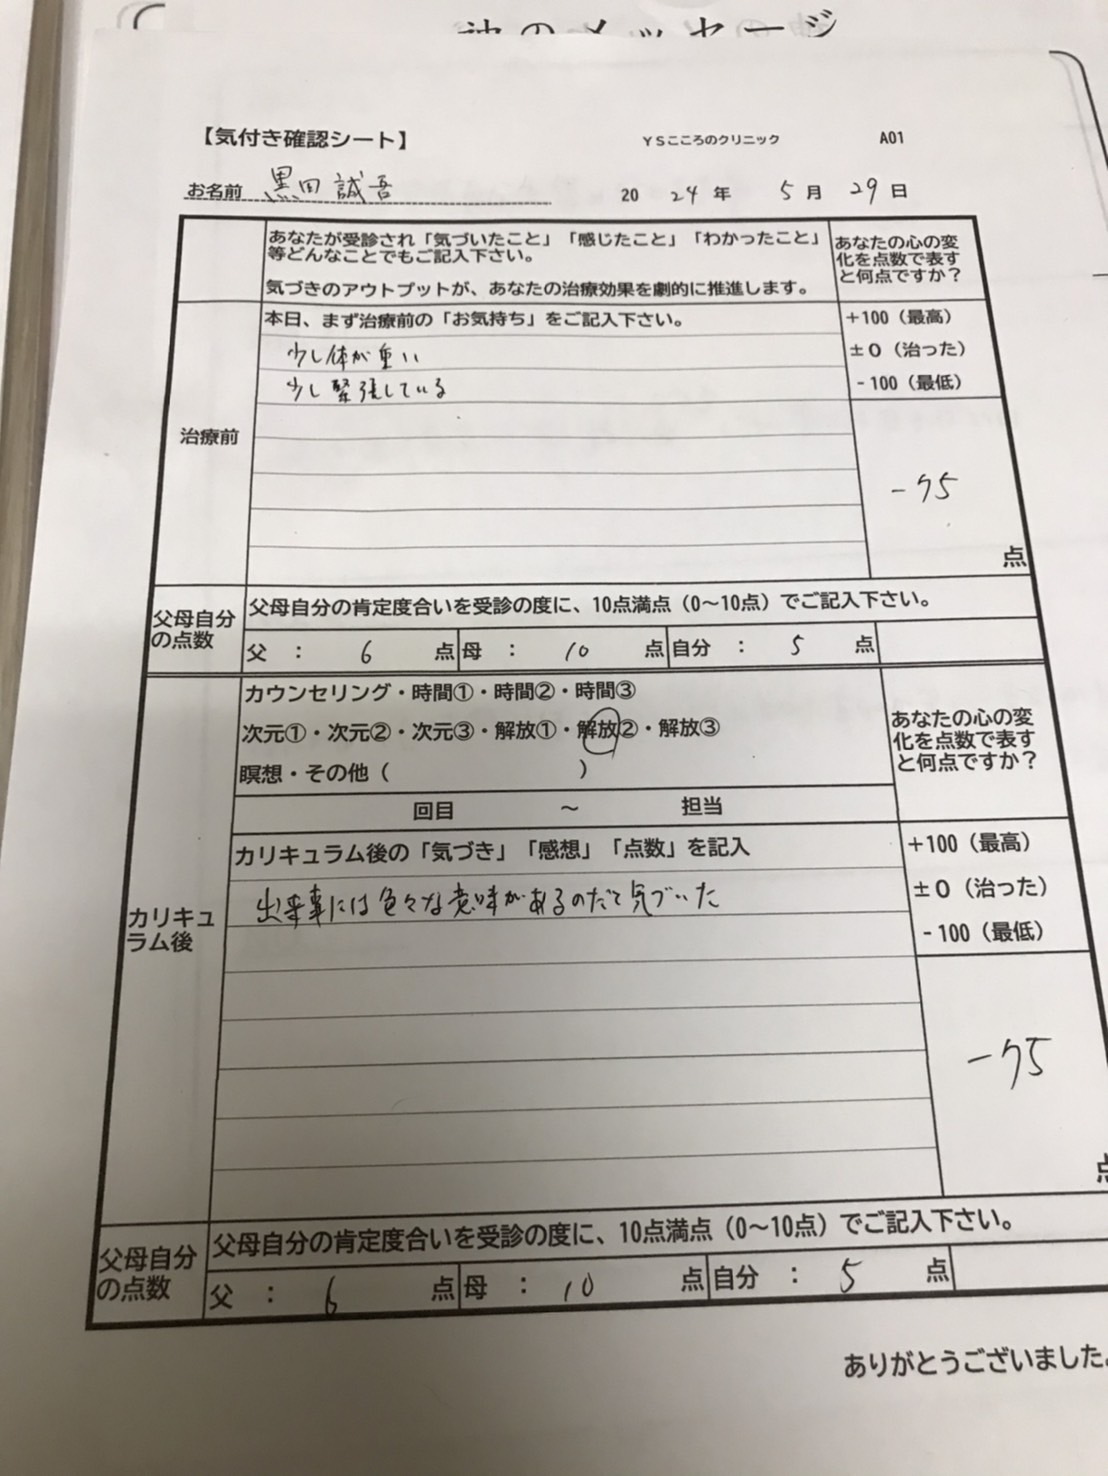 神のメッセージ
【気付き確認シート】 YSこころのクリニック A01
お名前 黒田誠吾 2024年 5月 29日
あなたが受診され「気づいたこと」「感じたこと」「わかったこと」
等どんなことでもご記入下さい。
気づきのアウトプットが、あなたの治療効果を劇的に推進します。
あなたの心の変
化を点数で表す
と何点ですか？
治療前
本日、まず治療前の「お気持ち」をご記入下さい。
少し体が重い
少し緊張している
+100（最高）
±0（治った）
-100（最低）
-75
点
父母自分
の点数
父母自分の肯定度合いを受診の度に、10点満点（0～10点）でご記入下さい。
父 ： 6 点 母 ： 10 点 自分 ： 5 点
カリキュ
ラム後
カウンセリング・時間①・時間②・時間③
次元①・次元②・次元③・解放①・解放②・解放③
瞑想・その他（ ）
回目 ～ 担当
あなたの心の変
化を点数で表す
と何点ですか？
カリキュラム後の「気づき」「感想」「点数」を記入
出来事には色々な意味があるのだて気づいた
+100（最高）
±0（治った）
-100（最低）
-75
点
父母自分
の点数
父母自分の肯定度合いを受診の度に、10点満点（0～10点）でご記入下さい。
父 ： 6 点 母 ： 10 点 自分 ： 5 点
ありがとうございました。